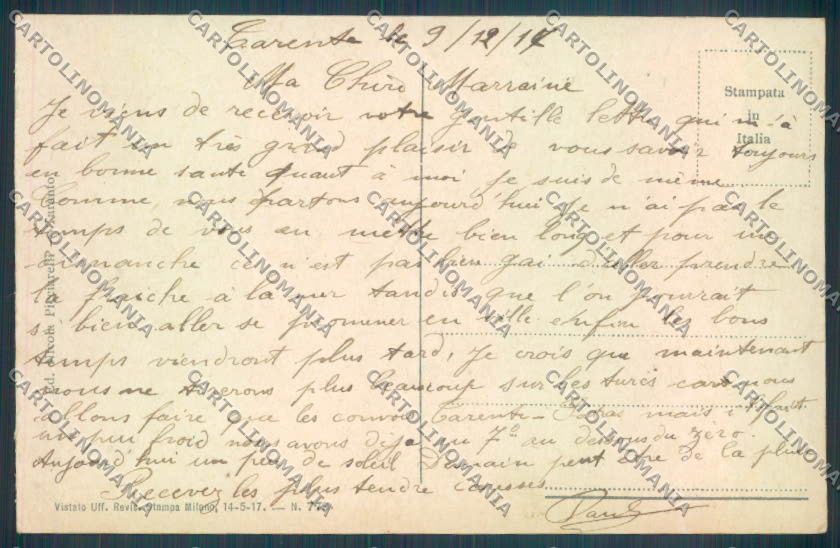 Tarente le 9/12/17
Ma Chère Marraine
Stampata
in
Italia
Je viens de recevoir votre gentille lettre qui m'à
fait un très grand plaisir de vous savoir toujours
en bonne santé quant à moi je suis de même
Comme, nous partons aujourd'hui je n'ai pas le
temps de vous en mettre bien long et pour un
dimanche ce n'est pas bien gai d'aller prendre
la fraiche à la mer tandis que l'on pourrait
si bien aller se promener en ville enfin les bons
temps viendront plus tard, Je crois que maintenant
nous ne tirerons plus beaucoup sur les turcs car nous
allons faire que les convois Tarente - mais il fait
un peu froid nous avons déjà eu 7° au dessous du zéro.
Aujourd'hui un peu de soleil Demain peut être de la pluie
Recevez les plus tendre
Ed. Nicola - Taranto
Vistato Uff. Revis. Stampa Milano, 14-5-17. — N.
CARTOLINOMANIA